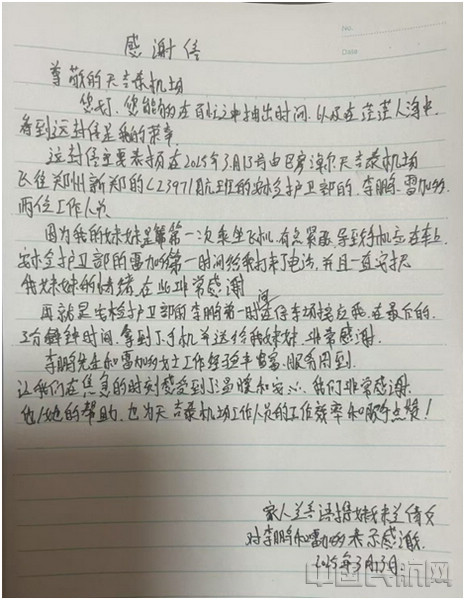 No.
Date
感谢信
尊敬的天吉泰机场
您好，您能够在百忙之中抽出时间，以及在茫茫人海中，
看到这封信是我的荣幸
这封信主要表扬在2025年3月13号由巴彦淖尔天吉泰机场
飞往郑州新郑的 航班的安检护卫部的，李鹏，雷
两位工作人员
因为我的妹妹是第一次乘坐飞机，有点紧张，导致手机忘在车上
安检护卫部的雷 第一时间给我打来了电话，并且一直安抚
我妹妹的情绪，在此非常感谢
再就是安检护卫部的李鹏第一时间 停车场接应我，在最后的
分钟时间，拿到了手机并送给我妹妹，非常感谢。
李鹏先生和雷 女士工作经验丰富，服务周到
让我们在焦急的时刻感受到了温暖和安心，我们非常感谢
他/她的帮助，也为天吉泰机场工作人员的工作效率和服务点赞！
家人兰
对李鹏和雷 表示感谢.
2025年3月13号
中国民航网